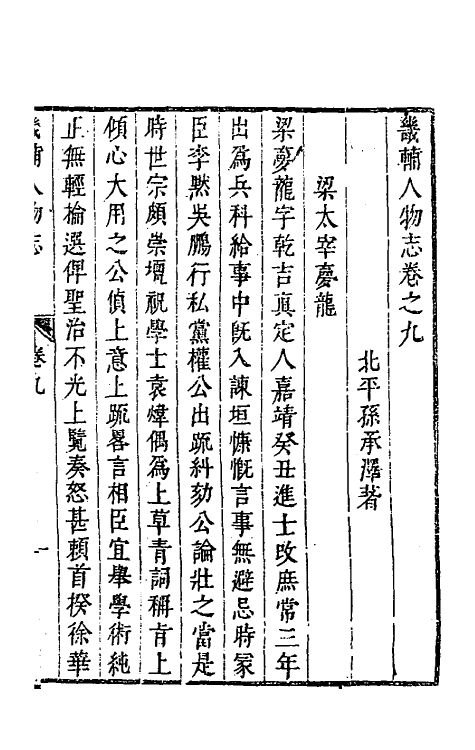 畿輔人物志卷之九
北平孫承澤著
梁太宰夢龍
梁夢龍字乾吉真定人嘉靖癸丑進士改庶常三年
出爲兵科給事中旣入諫垣慷慨言事無避忌時冢
臣李默吳鵬行私黨權公出疏糾劾公論壯之當是
時世宗頗崇壇祝學士袁煒偶爲上草青詞稱肯上
傾心大用之公偵上意上疏畧言相臣宜舉學術純
正無輕掄選俾聖治不光上覽奏怒甚頼首揆徐華
畿輔人物志
卷九
一